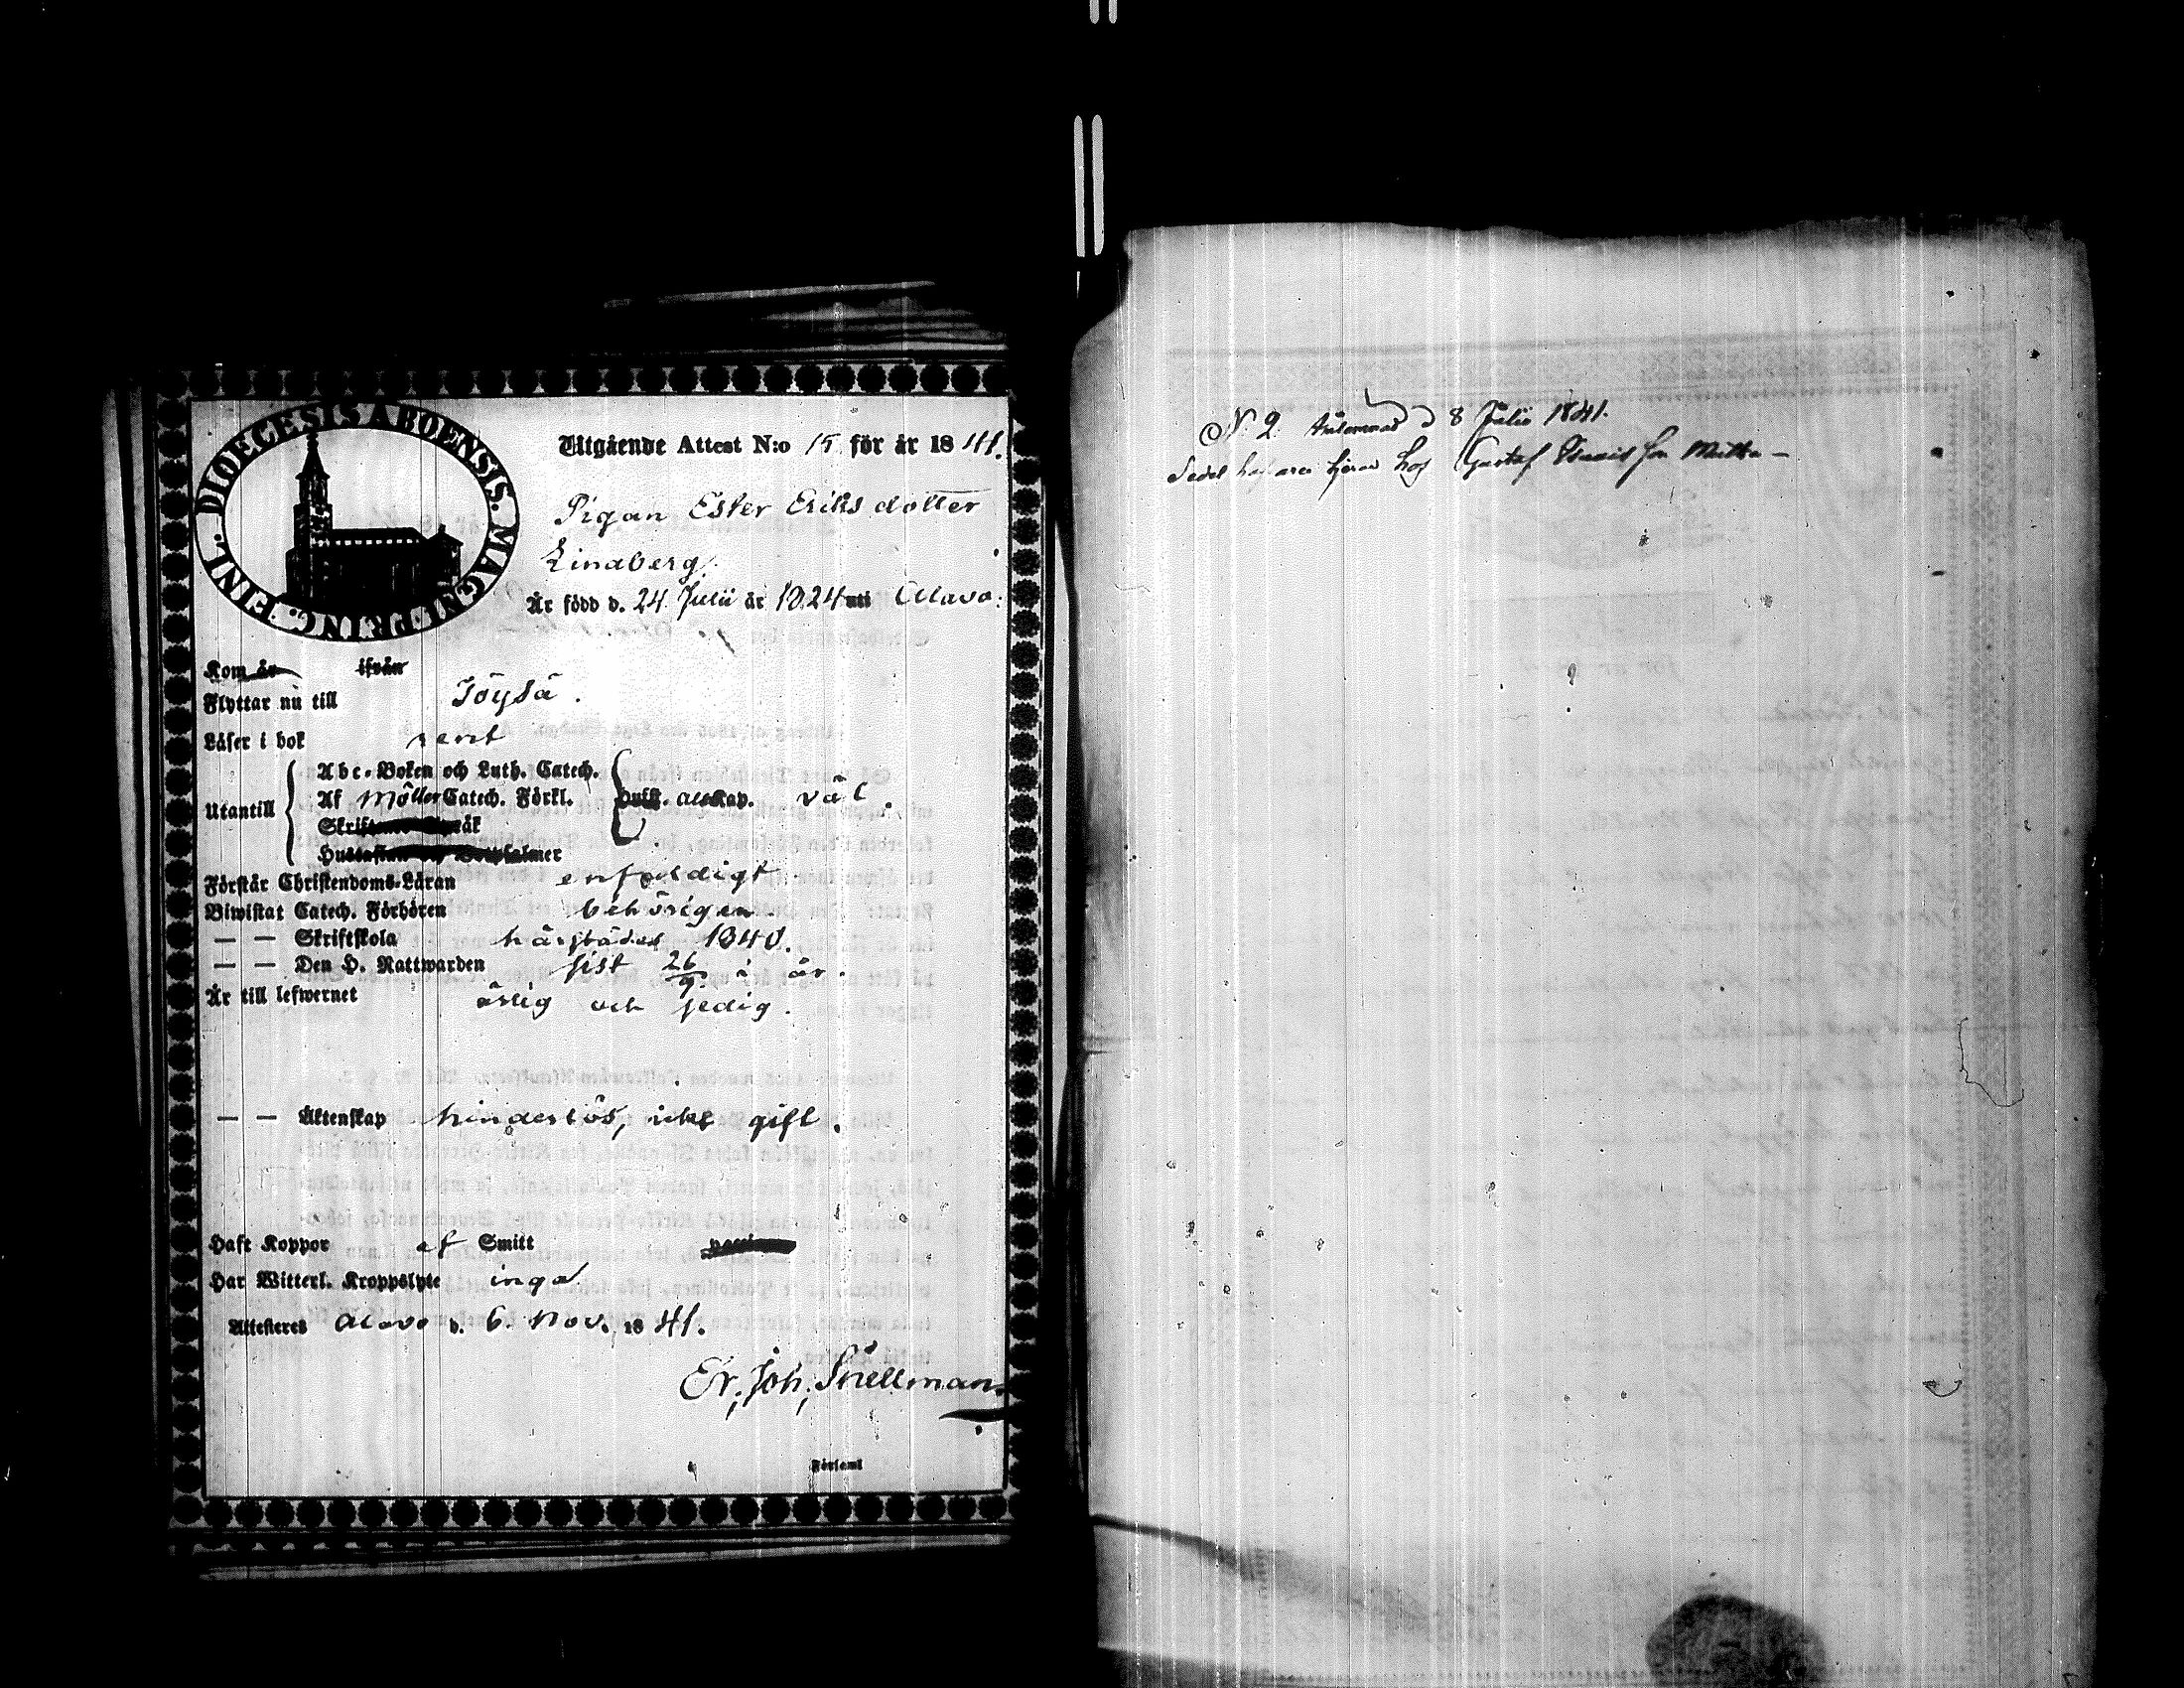 DIOECESIS ABOENSIS. MAGNI PRINC. FINL.
Utgående Attest N:o 15 för år 1841.
Pigan Ester Eriksdotter
Lindberg.
Är född d. 24 Julii år 1824 uti Alavo.
Kom år ifrån
Flyttar nu till Töysä.
Läser i bok rent
Utantill
Abc-Boken och Luth. Catech.
Af Möller Catech. Förkl.
Skriftenes Språk
Hustaflan och Botpsalmer
Hufst. all Kap. väl.
Förstår Christendoms-Läran enfaldigt.
Biwistat Catech. Förhören behörigen.
— — Skriftskola härstädes 1840.
— — Den H. Nattwarden sist 26/9 i år.
Är till lefwernet ärlig och sedig.
— — Äktenskap hinderlös, icke gift.
Haft Koppor af Smitt
Har Witterl. Kroppslyte inga
Attesteras Alavo d. 6. Nov. 1841.
Er. Joh. Snellman
Församl
N. 2. d 8 Julii 1841.
Sedel tjenar hos Gustaf